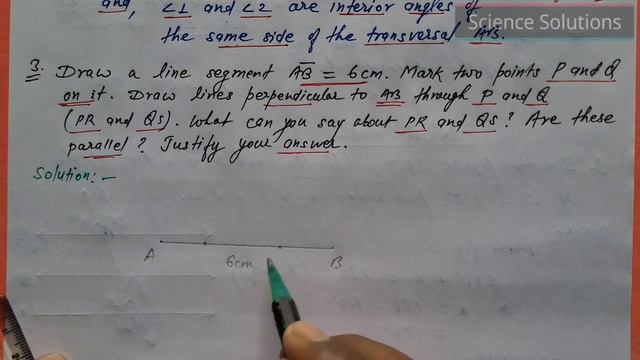 and, ∠1 and ∠2 are interior angles of
the same side of the transversal AB.
Science Solutions
3. Draw a line segment AB = 6cm. Mark two points P and Q
on it. Draw lines perpendicular to AB through P and Q
(PR and QS). What can you say about PR and QS? Are these
parallel? Justify your answer.
Solution:-
A 6cm. B